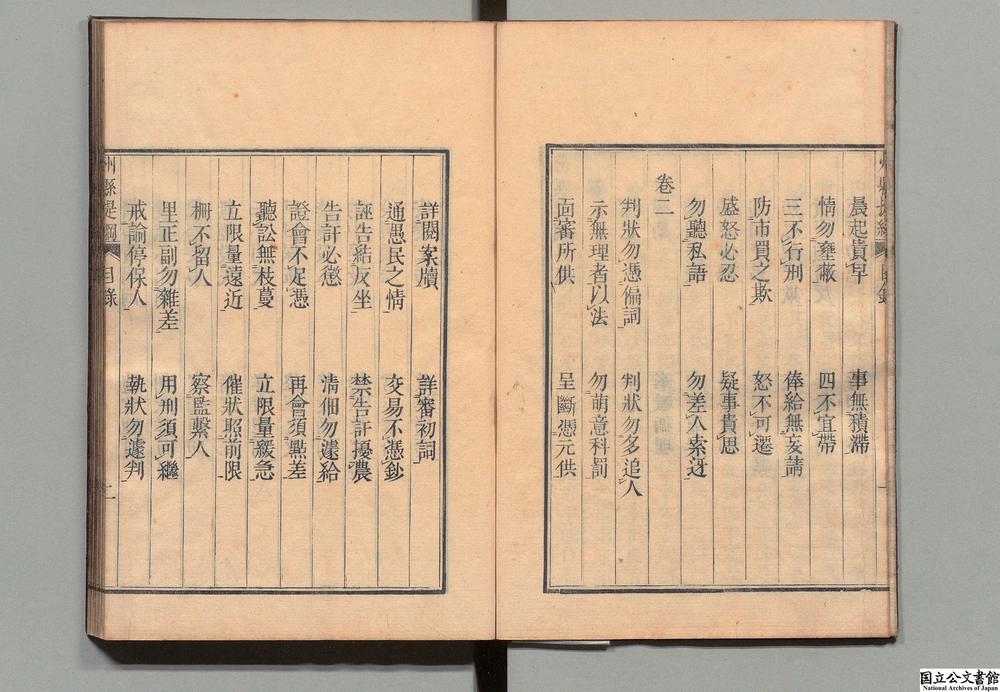 晨起貴早　事無積滯
情勿壅蔽　四不宜帶
三不行刑　俸給無妄請
防市買之欺　怒不可遷
盛怒必忍　疑事貴思
勿聽私語　勿差人索迓
卷二
判狀勿憑偏詞　判狀勿多追人
示無理者以法　勿萌意科罰
面審所供　呈斷憑元供
州縣提綱　目錄　一
詳閱案牘　詳審初詞
通愚民之情　交易不憑鈔
誣告結反坐　禁告訐擾農
告訐必懲　請佃勿遽給
證會不足憑　再會須點差
聽訟無枝蔓　立限量緩急
立限量遠近　催狀照前限
柵不留人　察監繫人
里正副勿雜差　用刑須可繼
戒諭停保人　執狀勿遽判
州縣提綱　目錄　二
国立公文書館
National Archives of Japan